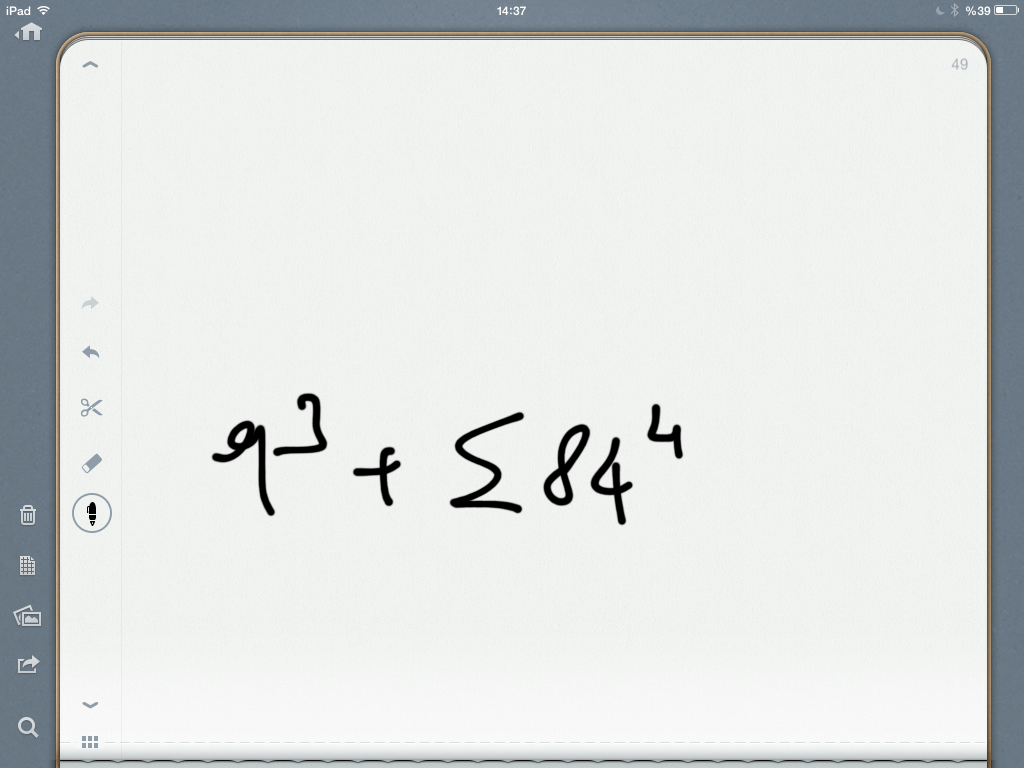 iPad 14:37 %39
49
9³ + Σ 84⁴